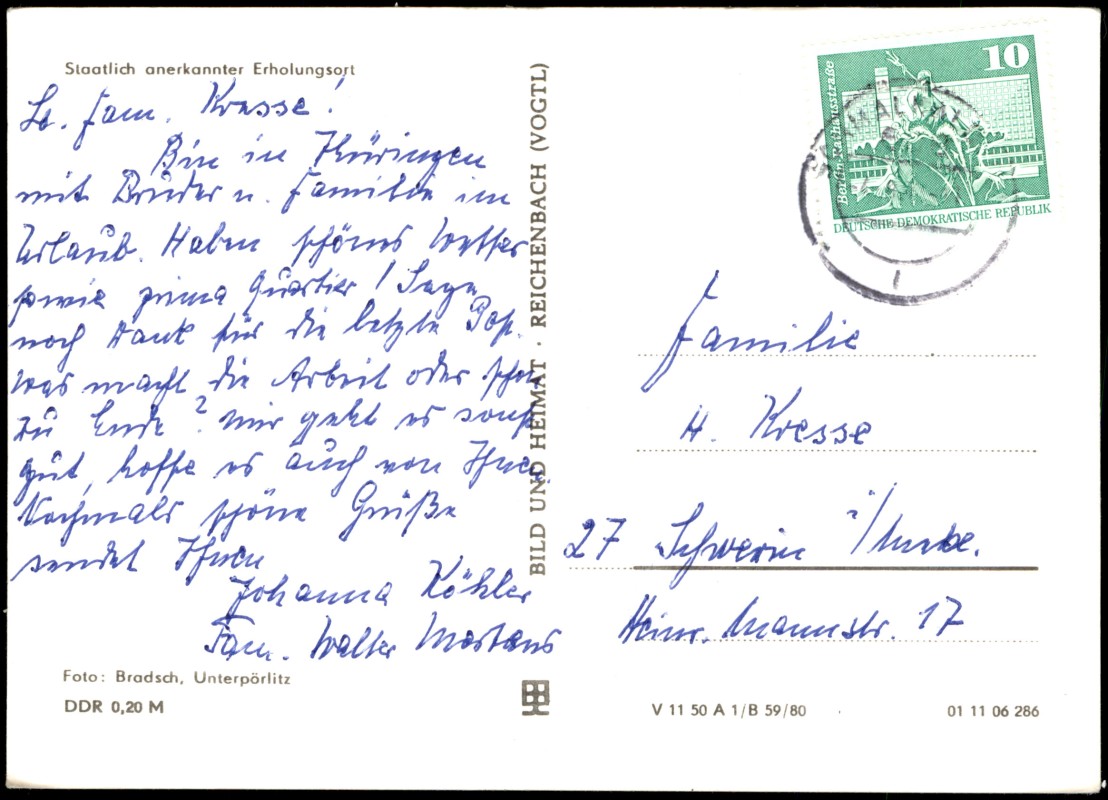 Staatlich anerkannter Erholungsort
Lb. Fam. Kresse!
Bin in Thüringen
mit Bruder u. Familie im
Urlaub. Haben schönes Wetter
sowie prima Quartier! Sage
noch Dank für die letzte Post.
Was macht die Arbeit oder schon
zu Ende? Mir geht es sonst
gut, hoffe es auch von Ihnen.
Nochmals schöne Grüße
sendet Ihnen
Johanna Köhler
Fam. Walter Martens
Foto: Bradsch, Unterpörlitz
DDR 0,20 M
BILD UND HEIMAT · REICHENBACH (VOGTL)
10
Berlin, Rathausstraße
DEUTSCHE DEMOKRATISCHE REPUBLIK
Familie
H. Kresse
27 Schwerin
Heinr. Mannstr. 17
V 11 50 A 1/B 59/80
01 11 06 286